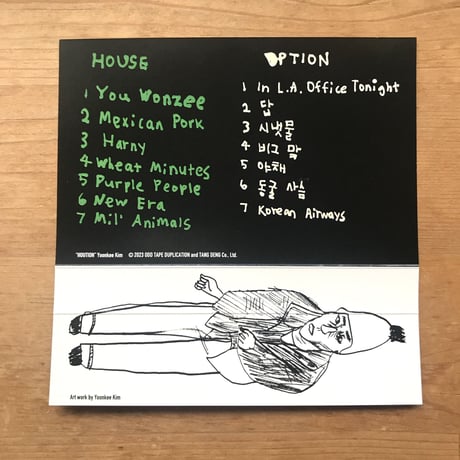 HOUSE
1 You Wonzee
2 Mexican Pork
3 Harny
4 Wheat Minutes
5 Purple People
6 New Era
7 Mil' Animals
OPTION
1 In L.A. Office Tonight
2 답
3 시냇물
4 비그 막
5 야채
6 동굴 사슴
7 Korean Airways
"HOUTION" Yoonkee Kim © 2023 ODD TAPE DUPLICATION and TANG DENG Co., Ltd.
Art work by Yoonkee Kim